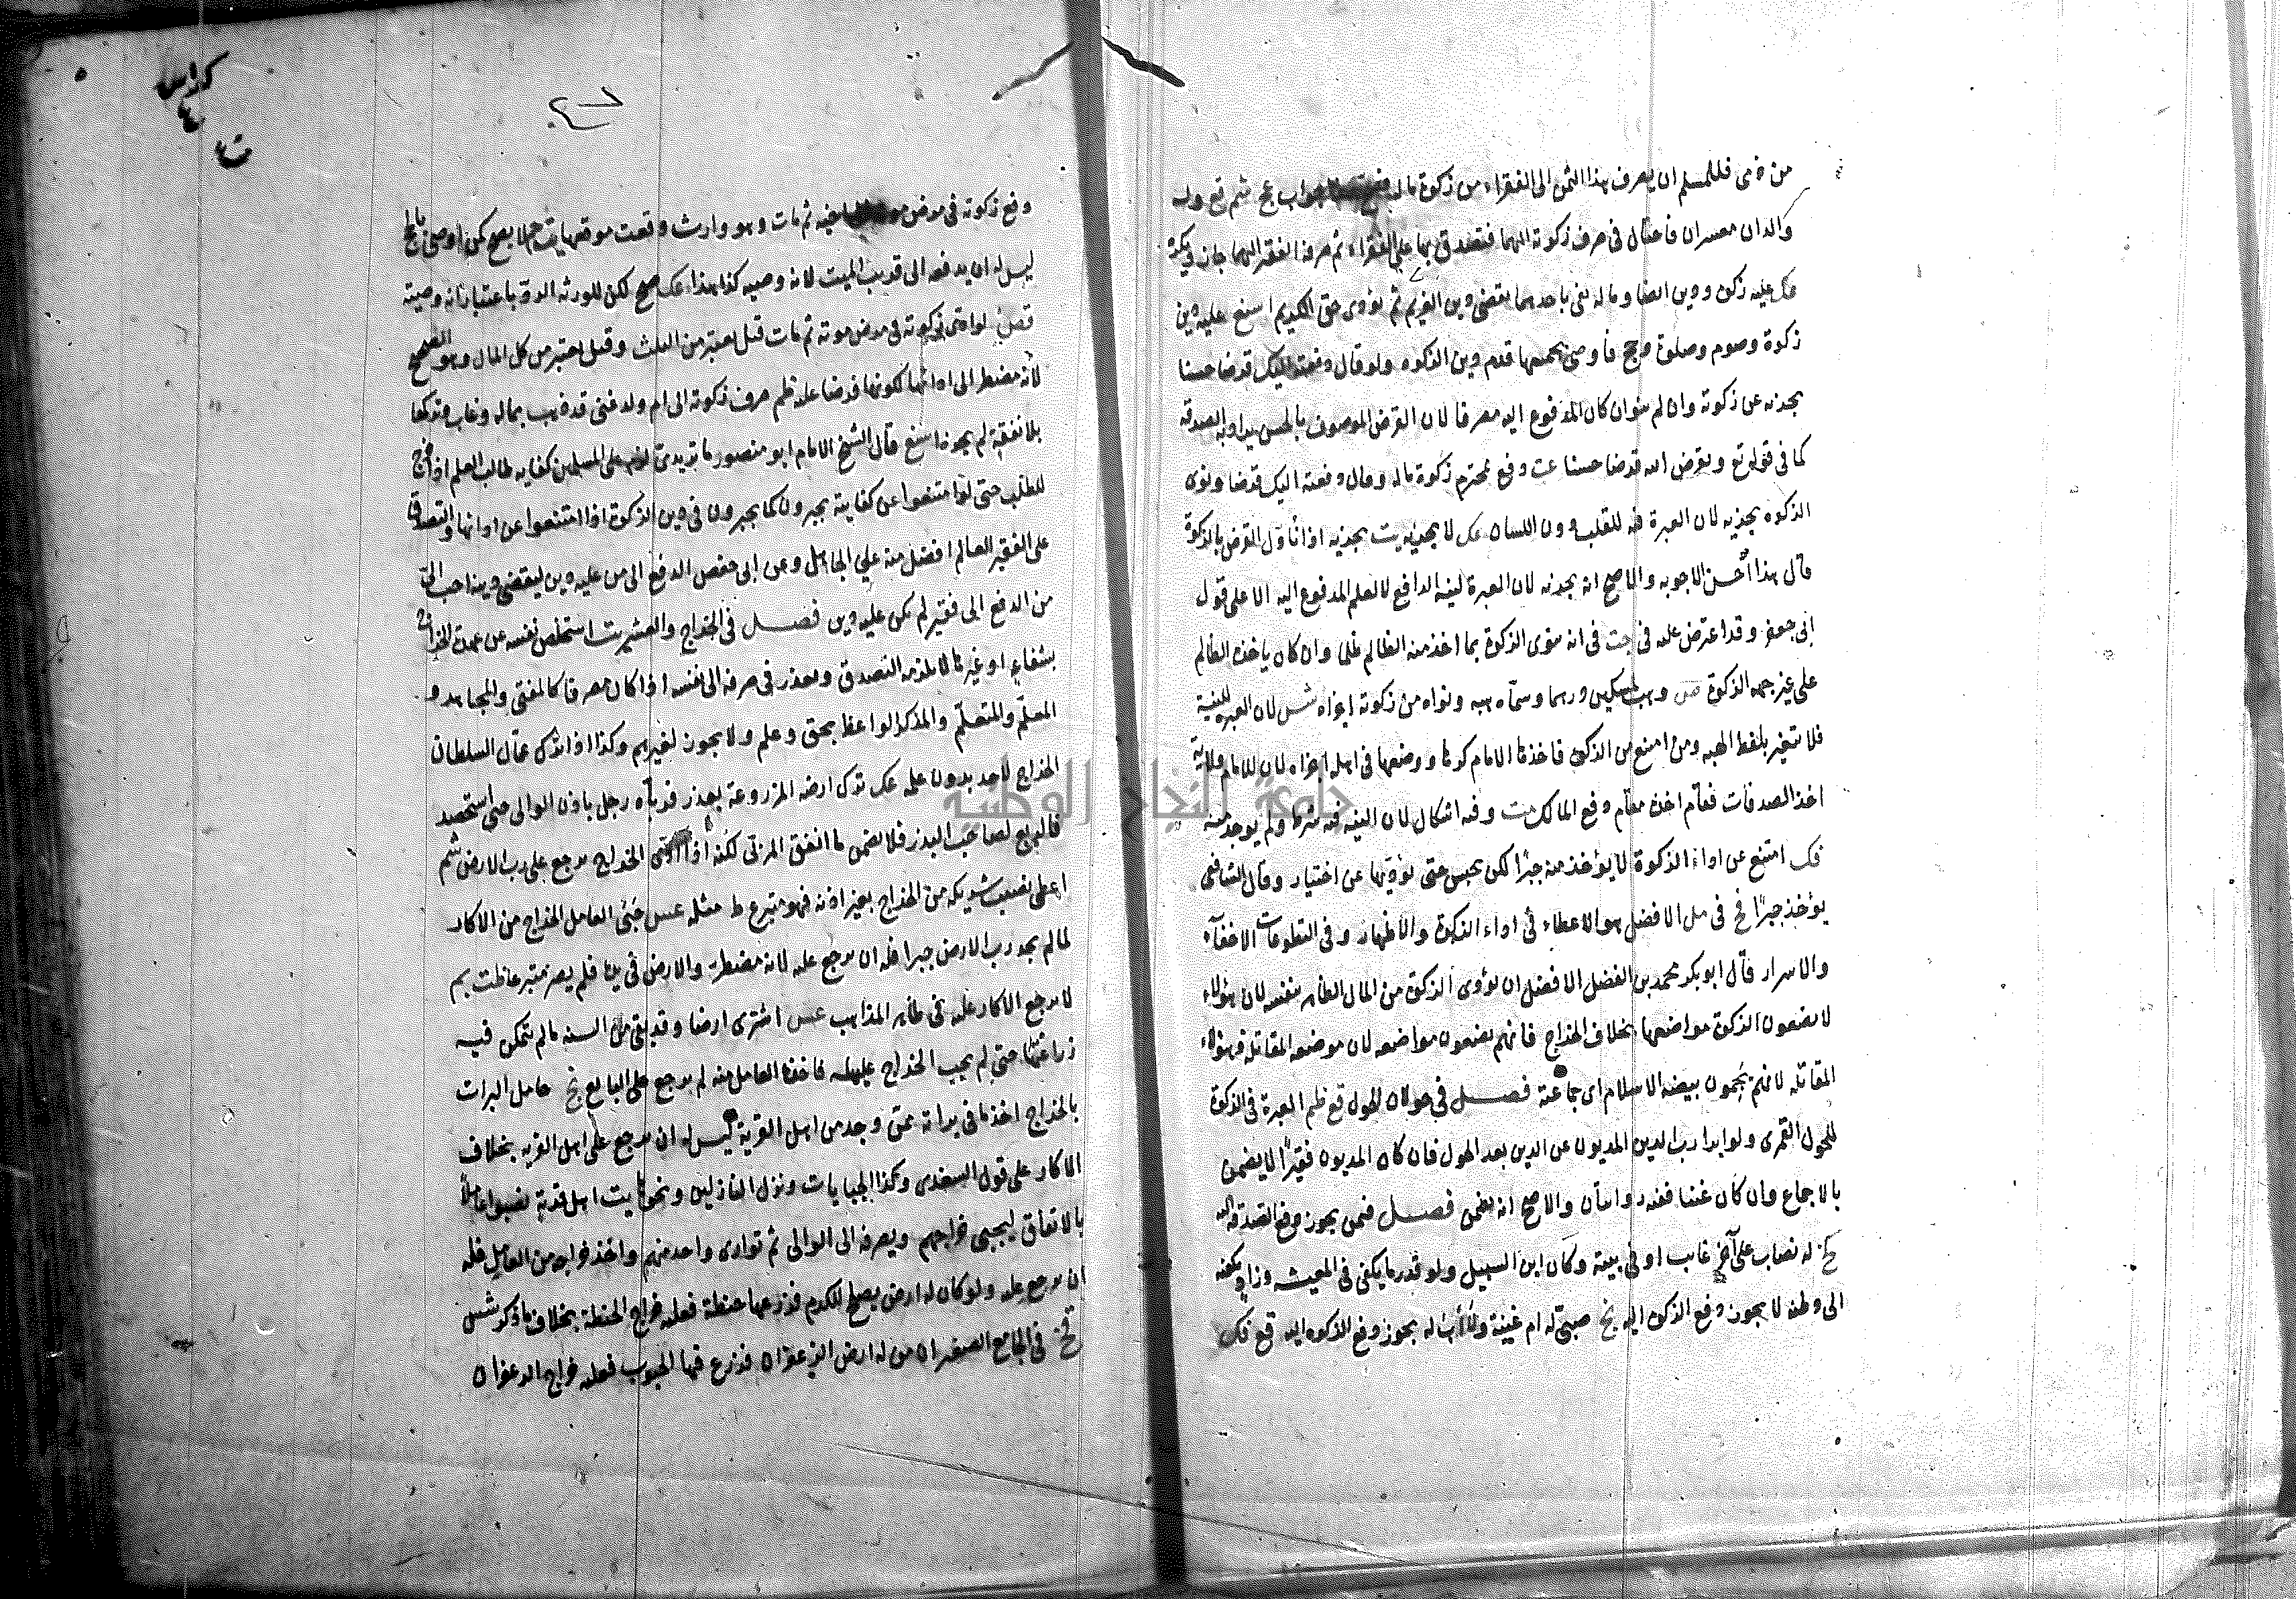 من ذمى فللمسلم ان يصرف هذا الثمن الى الفقراء من زكوة ماله جواب عج شم قع وله
والدان معسران فاحتال فى صرف زكوته اليهما فتصدق بها على الفقراء ثم صرفه الفقير اليهما جاز ويكره
فك عليه زكوة ودين ايضا وماله يفى باحدهما يقضى دين الغريم ثم يؤدى حق الكريم اسنع عليه دين
زكوة وصوم وصلوة وحج فأوصى بجميعها قدم دين الزكوه ولو قال دفعته اليك قرضا حسنا
يجزيه عن زكوته وان لم ينو ان كان المدفوع اليه مصرفا لان القرض الموصوف بالحسن يراد به الصدقة
كما فى قوله تع ويقرض الله قرضا حسنا عت دفع لمحترم زكوة ماله وقال دفعته اليك قرضا ونوى
الزكوه يجزيه لان العبرة فيه للقلب دون اللسان عك لا يجزيه يت يجزيه اذا تأول القرض بالزكوة
قال هذا أحسن الاجوبه والاصح انه يجزيه لان العبرة لنية الدافع لا لعلم المدفوع اليه الا على قول
ابى جعفر وقد اعترض عليه فى جت فى انه ينوى الزكوة بما اخذ منه الظالم ظلما وان كان ياخذه الظالم
على غير جهه الزكوة وهب لمسكين درهما وسمّاه هبه ونواه من زكوته اجزاه لان العبره للنية
فلا يتغير بلفظ الهبه ومن امتنع من الزكوة فاخذها الامام كرها ووضعها فى اهله اجزاه لان للامام ولاية
اخذ الصدقات فقام اخذه مقام دفع المالك مت وفيه اشكال لان النيه فيه شرط ولم يوجد منه
فك امتنع عن اداء الزكوة لا يؤخذ منه جبرًا لكن يحبس حتى يؤديها عن اختيار وقال الشافعى
يؤخذ جبرًا فى مل الافضل هو الاعطاء فى اداء الزكوة والاظهار وفى التطوعات الاخفآء
والاسرار قال ابو بكر محمد بن الفضل الافضل ان يؤدى الزكوة من المال الظاهر بنفسه لان هؤلاء
لا يضعون الزكوة مواضعها بخلاف الخراج فانهم يضعون مواضعه لان موضعه المقاتلة فهؤلاء
المقاتله لانهم يحمون بيضه الاسلام اى جماعته فصل فى حولان الحول قع ظم العبرة فى الزكوة
للحول القمرى ولو ابرا رب الدين المديون عن الدين بعد الحول فان كان المديون فقيرًا لا يضمن
بالاجماع وان كان غنيا ففيه روايتان والاصح انه يضمن فصل فمن يجوز دفع الصدقه اليه
له نصاب على آخر غايب او فى بيته وكان ابن السبيل ولو قدر ما يكفى فى المعيشه وزاد يمكنه
الى وطنه لا يجوز دفع الزكوة اليه نج صبىّ له ام غنية ولا أب له يجوز دفع الزكوه اليه قع فك
كراس
دفع زكوته فى مرض ثم مات وهو وارث وقعت موقعها لا يصح كمن اوصى بالحج
ليس له ان يدفعه الى قريب الميت لانه وصيه كذا هذا عك صح لكن للورثه الرد باعتبار انه وصية
لو ادى زكوته فى مرض موته ثم مات قيل يعتبر من الثلث وقيل يعتبر من كل المال وهو الصحيح
لأنه مضطر الى ادائها لكونها فرضا عليه ظم صرف زكوته الى ام ولد غنى قد ذهب بماله وغاب وتركها
بلا نفقة لم يجوز اسنع قال الشيخ الامام ابو منصور ماتريدى على المسلمين كفايه طالب العلم اذا خرج
للطلب حتى لو امتنعوا عن كفايته يجبرون كما يجبرون فى دين الزكوة اذا امتنعوا عن ادائها والتصدق
على الفقير العالم افضل منه على الجاهل وعن ابى حفص الدفع الى من عليه دين ليقضى دينه احب الىّ
من الدفع الى فقير لم يكن عليه دين فصل فى الخراج والعشر يت استخلص نفسه عن عهدة الخراج
بشفاعه او غيرها لا يلزمه التصدق ويعذر فى صرفه الى نفسه اذا كان مصرفا كالمفتى والمجاهد و
المعلّم والمتعلّم والمذكر الواعظ بحق وعلم ولا يجوز لغيرهم وكذا اذا ترك عمّال السلطان
الخراج لاحد بدون علمه عك ترك ارضه المزروعة رجل باذن الوالى حتى استحصد
فالريع لصاحب البذر فلا يضمن ما انفق المربّى لكنه اذا ادّى الخراج يرجع على رب الارض شم
اعطى نصيب شريكه من الخراج بغير اذنه فهو متبرع ط مثله جبى العامل الخراج من الاكار
لما لم يجد رب الارض جبرا فله ان يرجع عليه لانه مضطر والارض فى يده فلم يصر متبرعا ظت بم
لا يرجع الاكار عليه فى ظاهر المذاهب اشترى ارضا وقد بقى من السنه مالم يتمكن فيه
زراعتها حتى لم يجب الخراج عليه فاخذه العامل منه لم يرجع على البايع نج حامل البرات
بالخراج اخذ ما فى براته ممن وجد من اهل القرية ليس له ان يرجع على اهل القريه بخلاف
الاكار على قول السغدى وكذا الجبايات ونزل النازلين ونحوها يت اهل قرية نصبوا عاملاً
بالاتفاق ليجبى خراجهم ويصرفه الى الوالى ثم توارى واحد منهم واخذ خراجه من العامل فله
ان يرجع عليه ولو كان له ارض يصلح للكرم فزرعها حنطة فعليه خراج الحنطة بخلاف ما ذكر
فى الجامع الصغير ان من له ارض الزعفران فزرع فيها الحبوب فعليه خراج الزعفران
جامعة النجاح الوطنية